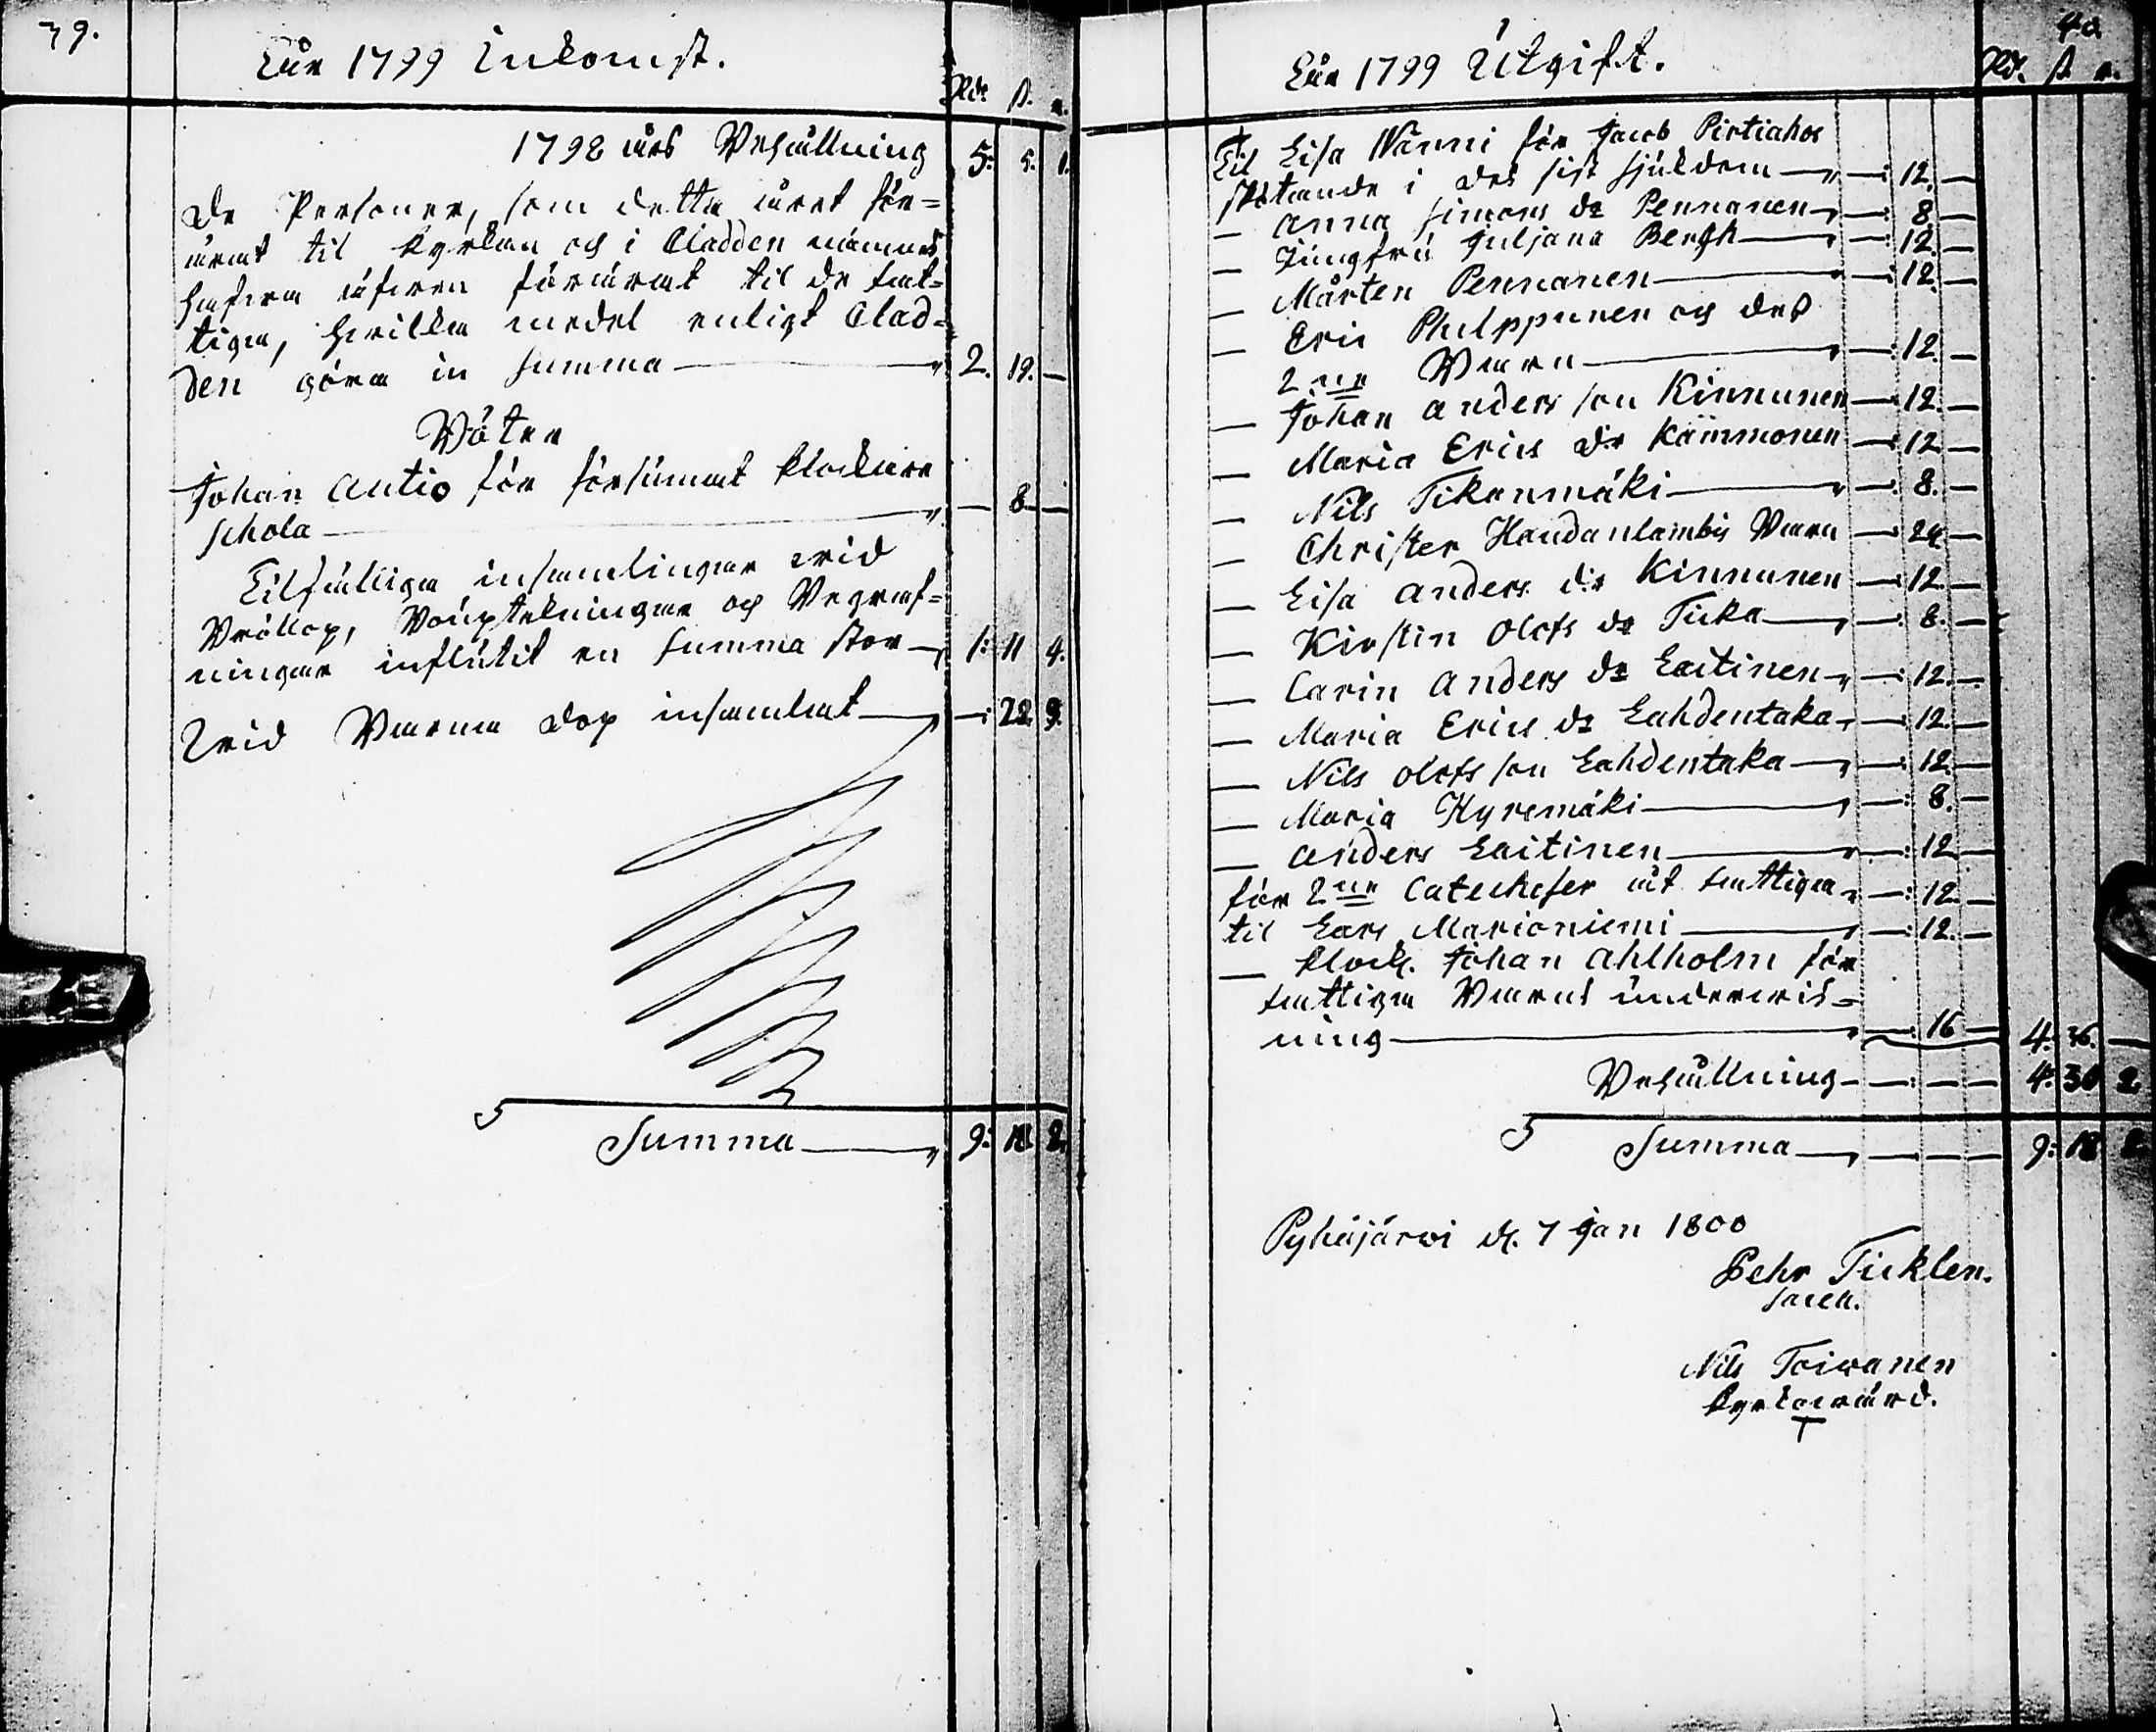 39.
För 1799 Inkomst.
Rd: ß. r.
1798 års Behållning 5: 5. 1.
De Personer, som detta året för=
ärat til kyrkan och i Cladden nämnas
hafwa äfwen förärat til de fat=
tiga, hwilka medel enligt Clad=
den göra in Summa — 2. 19. —
Böter
Johan Autio för försummat klockare
schola — — 8 —
Tilfällige insamlingar wid
Bröllop, Barnsängar och Begraf=
ningar influtit en Summa stor — 1: 11 4.
Wid Barna dop insamlat — —: 22. 9.
Summa — 9: 18. 2.
40.
För 1799 Utgift.
Rd. ß. r.
Til Lisa Nänni för Jacob Pirtiahos
skötande i des sist sjukdom — —: 12. —
— Anna Simons dr Pennanen — —: 8 —
— Jungfru Juljana Bergh — —: 12. —
— Mårten Pennanen — —: 12. —
— Eric Philppunen och des
2:ne Barn — —: 12. —
— Johan Anders son Kinnunen — 12. —
— Maria Erics dr Kämmonen — 12 —
— Nils Tikanmäki — —: 8. —
— Christer Haudanlambis Barn — 24 —
— Lisa Anders dr Kinnunen — 12 —
— Kirstin Olofs dr Ticka — —: 8. —
— Carin Anders dr Laitinen — —: 12. —
— Maria Erics dr Lahdentaka — —: 12. —
— Nils Olofs son Lahdentaka — —: 12 —
— Maria Hyremäki — —: 8. —
— Anders Laitinen — —: 12 —
för 2:ne Catecheser åt fattiga — —: 12. —
til Lars Marioniemi — —: 12. —
— klock. Johan Ahlholm för
fattiga Barns underwis=
ning — —: 16 — 4. 36. —
Behållning — —: — — 4: 30 2.
Summa — — — — 9: 18 2.
Pyhäjärwi d. 7 Jan 1800
Pehr Ticklen.
Sacell.
Nils Toiwanen
kyrkowärd.